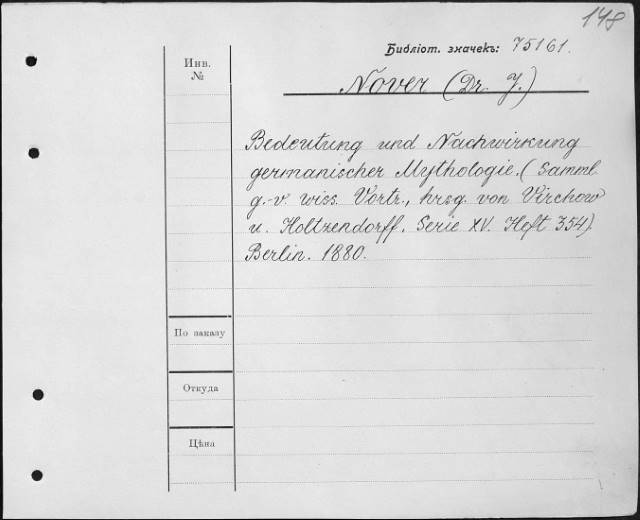 148
Библіот. значекъ: 75161.
Инв.
№
Nover (Dr. J.)
Bedeutung und Nachwirkung
germanischer Mythologie. (Samml.
g.-v. wiss. Vortr., hrsg. von Virchow
u. Holtzendorff. Serie XV. Heft 354).
Berlin. 1880.
По заказу
Откуда
Цѣна